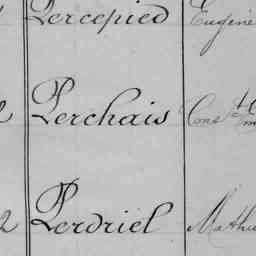 Percepied Eugène
Perchais Cons
2 Perdriel Mathu